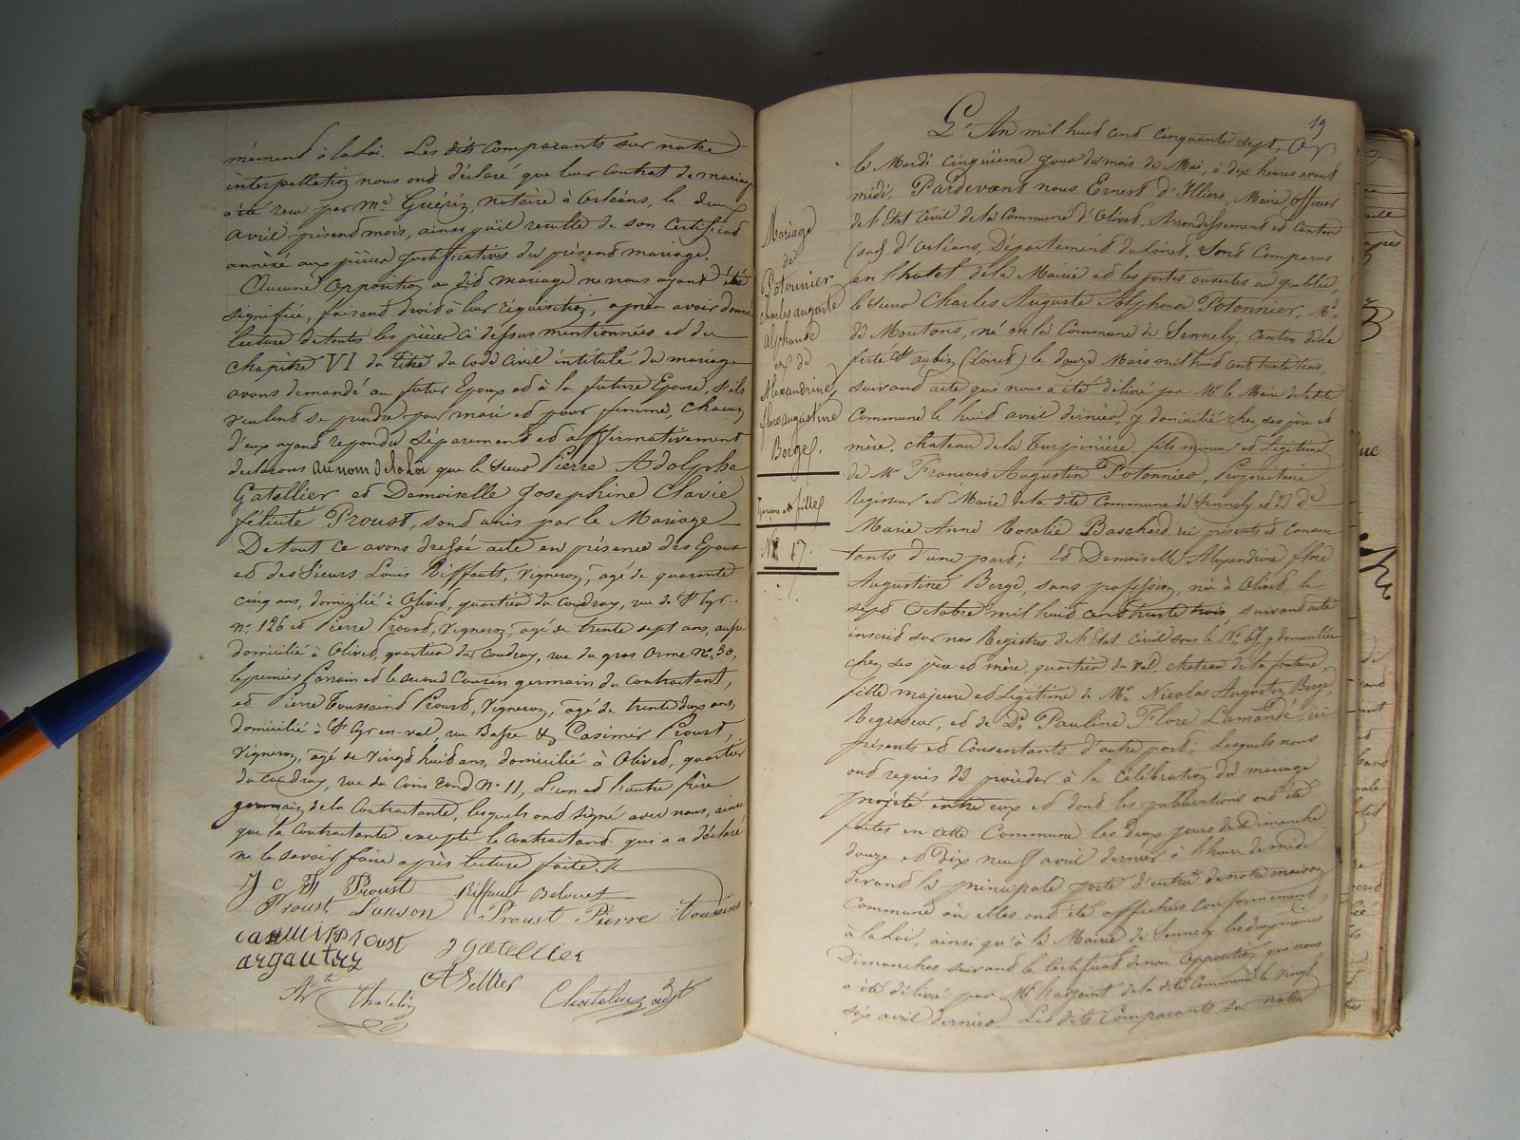 mément à la Loi. Les dits comparants sur notre
interpellation nous ont déclaré que leur contrat de mariage
a été reçu par Me Guériz, notaire à Orléans, le deux
avril présent mois, ainsi qu'il résulte de son certificat
annexé aux pièces justificatives du présent mariage.
Aucune opposition au dit mariage ne nous ayant été
signifiée, faisant droit à leur réquisition, après avoir donné
lecture de toutes les pièces ci dessus mentionnées et du
chapitre VI du titre du code civil intitulé du mariage
avons demandé au futur Epoux et à la future Epouse, s'ils
veulent se prendre pour mari et pour femme, chacun
d'eux ayant répondu séparément et affirmativement
declarons au nom de la Loi que le sieur Pierre Adolphe
Gatellier et Demoiselle Josephine Clavie
félicité Proust, sont unis par le Mariage
De tout ce avons dressé acte en présence des Epoux
et des Sieurs Louis Riffault, Vigneron, agé de quarante
cinq ans, domicilié à Olivet, quartier du Coudray, rue de St Cyr
no. 126 et Pierre Proust, Vigneron, agé de trente sept ans, aussi
domicilié à Olivet, quartier du Coudray, rue du gros Orme No. 30,
le premier et le second Cousin germain du contractant,
et Pierre Toussaint Proust, Vigneron, agé de trente deux ans,
domicilié à St Cyr en val, rue Basse & Casimir Proust,
Vigneron, agé de vingt huit ans, domicilié à Olivet, quartier
du Coudray, rue du Coin Rond No 11, l'un et l'autre frère
germain de la Contractante, lesquels ont signé avec nous, ainsi
que la contractante excepté le contractant qui a déclaré
ne le savoir faire après lecture faite.
J C F Proust Riffault
Proust Lanson Proust Pierre toussins
casimir Proust J gatellier
argautry A Sellier
Thatelin
19
L'An mil huit cent cinquante sept,
le Mardi cinquième jour du mois de Mai, à dix heures avant
midi, Pardevant nous Ernest d'Illiers, Maire officier
de l'Etat Civil de la Commune d'Olivet, Arrondissement et Canton
(sud) d'Orléans, Département du Loiret, Sont Comparus
en l'hotel de la Mairie et les portes ouvertes au public,
le sieur Charles Auguste Alphonse Potonnier, Md
de Moutons, né en la Commune de Sennely, Canton de la
ferté St aubin (Loiret) le douze Mars mil huit cent trente trois,
suivant acte qui nous a été délivré par Mr le Maire de la dite
Commune le huit avril dernier, y domicilié chez ses père et
mère, chateau de la Turpinière fils mineur et légitime
de Mr François Augustin Potonnier, Propriétaire
Régisseur et Maire de la dite Commune de Sennely et de De
Marie Anne Rosalie Baschard ici présents et consen-
tants d'une part; Et Demoiselle Alexandrine flore
Augustine Bergé, sans profession, née à Olivet le
sept Octobre mil huit cent trente trois suivant acte
inscrit sur nos Registres de l'Etat Civil sous le No. 67, y domiciliée
chez ses père et mère, quartier du val, chateau de la fontaine,
fille majeure et légitime de Mr. Nicolas Augustin Bergé,
Régisseur, et de De Pauline Flore Lamandé, ici
présents et Consentants d'autre part; Lesquels nous
ont requis de procéder à la célébration du mariage
projeté entre eux et dont les publications ont été
faites en cette Commune les deux jours de Dimanche
douze et dix neuf avril dernier à l'heure de midi
devant la principale porte d'entrée de notre maison
Commune où elles ont été affichées conformément
à la Loi, ainsi qu'à la Mairie de Sennely les deux mêmes
Dimanches suivant le Certificat de non opposition qui nous
a été délivré par Mr l'adjoint de la dite Commune le vingt
six avril dernier. Les dits Comparants sur notre
Mariage
de
Potonnier
charles auguste
alphonse
et de
Alexandrine
flore augustine
Bergé.
Garçon et fille
No 17.